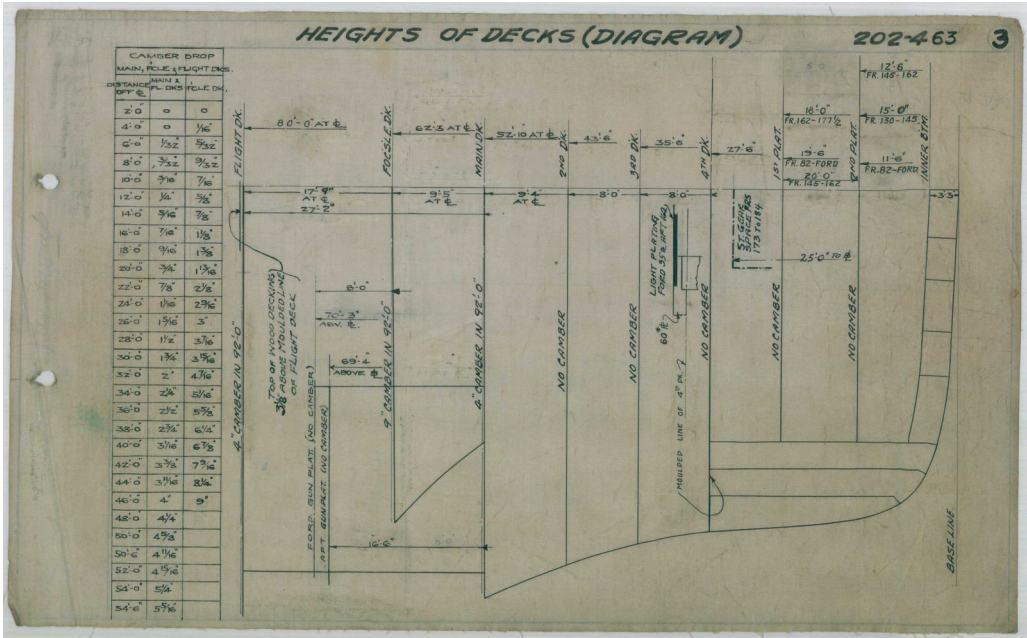 HEIGHTS OF DECKS (DIAGRAM)
202-463
3
CAMBER DROP
MAIN, FCLE & FLIGHT DKS.
DISTANCE OFF ℄ | MAIN & FL. DKS | FCLE DK.
2'-0" 0 0
4'-0" 0 1/16"
6'-0" 1/32" 5/32"
8'-0" 3/32" 9/32"
10'-0" 3/16" 7/16"
12'-0" 1/4" 5/8"
14'-0" 5/16" 7/8"
16'-0" 7/16" 1 1/8"
18'-0" 9/16" 1 3/8"
20'-0" 3/4" 1 13/16"
22'-0" 7/8" 2 1/8"
24'-0" 1 1/16" 2 9/16"
26'-0" 1 5/16" 3"
28'-0" 1 1/2" 3 7/16"
30'-0" 1 3/4" 3 15/16"
32'-0" 2" 4 7/16"
34'-0" 2 1/4" 5 1/16"
36'-0" 2 1/2" 5 5/8"
38'-0" 2 3/4" 6 1/4"
40'-0" 3 1/16" 6 7/8"
42'-0" 3 3/8" 7 9/16"
44'-0" 3 11/16" 8 1/4"
46'-0" 4" 9"
48'-0" 4 1/4"
50'-0" 4 5/8"
50'-6" 4 11/16"
52'-0" 4 15/16"
54'-0" 5 1/4"
54'-6" 5 5/16"
FLIGHT DK.
80'-0" AT ℄
FOCSLE DK.
62'-3 AT ℄
MAIN DK.
52'-10 AT ℄
2ND DK.
43'-6"
3RD DK.
35'-6"
4TH DK.
27'-6"
1ST PLAT.
18'-0"
FR.162-177½
19'-6"
FR.82-FORD
20'-0"
FR.145-162
2ND PLAT.
12'-6"
FR.145-162
15'-0"
FR.130-145
11'-6"
FR.82-FORD
INNER BTM.
17'-9"
AT ℄
27'-2"
9'-5"
AT ℄
9'-4"
AT ℄
8'-0"
8'-0"
3'3"
4" CAMBER IN 92'-0"
TOP OF WOOD DECKING
3⅛" ABOVE MOULDED LINE
OF FLIGHT DECK
FORD. GUN PLAT. (NO CAMBER)
AFT. GUN PLAT. (NO CAMBER)
8'-0"
70'-3"
ABV. ℄.
69'-4
ABOVE ℄
9" CAMBER IN 92'-0"
4" CAMBER IN 92'-0"
NO CAMBER
NO CAMBER
LIGHT PLATING
60 ℔
MOULDED LINE OF 4TH DK.
NO CAMBER
ST. GEAR
SPACE FRS
173 TO 184
25'-0" TO ℄
NO CAMBER
NO CAMBER
16'-6"
BASE LINE